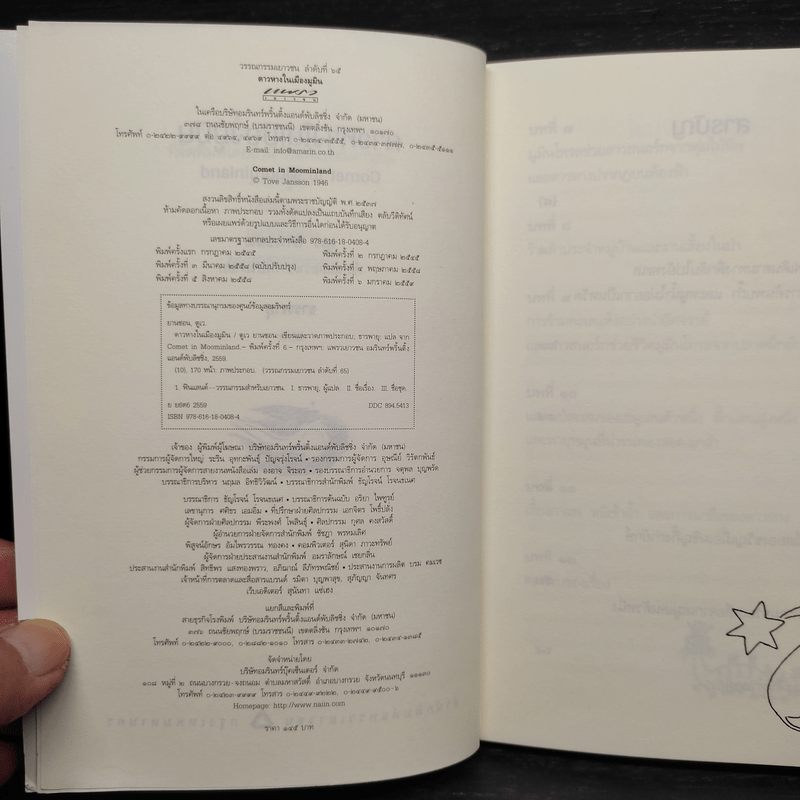 วรรณกรรมเยาวชน ลำดับที่ ๖๕
ดาวหางในเมืองมูมิน
ในเครือบริษัทอมรินทร์พริ้นติ้งแอนด์พับลิชชิ่ง จำกัด (มหาชน)
๓๗๘ ถนนชัยพฤกษ์ (บรมราชชนนี) เขตตลิ่งชัน กรุงเทพฯ ๑๐๑๗๐
โทรศัพท์ ๐-๒๔๒๒-๙๙๙๙ ต่อ ๔๙๖๔, ๔๙๖๙ โทรสาร ๐-๒๔๓๔-๓๕๕๕, ๐-๒๔๓๔-๓๗๗๗, ๐-๒๔๓๕-๕๑๑๑
E-mail: info@amarin.co.th
Comet in Moominland
© Tove Jansson 1946
สงวนลิขสิทธิ์หนังสือเล่มนี้ตามพระราชบัญญัติ พ.ศ. ๒๕๓๗
ห้ามคัดลอกเนื้อหา ภาพประกอบ รวมทั้งดัดแปลงเป็นแถบบันทึกเสียง ตลับวีดิทัศน์
หรือเผยแพร่ด้วยรูปแบบและวิธีการอื่นใดก่อนได้รับอนุญาต
เลขมาตรฐานสากลประจำหนังสือ 978-616-18-0408-4
พิมพ์ครั้งแรก กรกฎาคม ๒๕๔๕ พิมพ์ครั้งที่ ๒ กรกฎาคม ๒๕๔๕
พิมพ์ครั้งที่ ๓ มีนาคม ๒๕๕๘ (ฉบับปรับปรุง) พิมพ์ครั้งที่ ๔ พฤษภาคม ๒๕๕๘
พิมพ์ครั้งที่ ๕ สิงหาคม ๒๕๕๘ พิมพ์ครั้งที่ ๖ มกราคม ๒๕๕๙
ข้อมูลทางบรรณานุกรมของศูนย์ข้อมูลอมรินทร์
ยานซอน, ตูเว.
ดาวหางในเมืองมูมิน / ตูเว ยานซอน: เขียนและวาดภาพประกอบ; ธารพายุ: แปล จาก
Comet in Moominland.-- พิมพ์ครั้งที่ 6.-- กรุงเทพฯ: แพรวเยาวชน อมรินทร์พริ้นติ้ง
แอนด์พับลิชชิ่ง, 2559.
(10), 170 หน้า: ภาพประกอบ. (วรรณกรรมเยาวชน ลำดับที่ 65)
1. ฟินแลนด์--วรรณกรรมสำหรับเยาวชน. I. ธารพายุ, ผู้แปล. II. ชื่อเรื่อง. III. ชื่อชุด.
ย ย6ด6 2559 DDC 894.5413
ISBN 978-616-18-0408-4
เจ้าของ ผู้พิมพ์ผู้โฆษณา บริษัทอมรินทร์พริ้นติ้งแอนด์พับลิชชิ่ง จำกัด (มหาชน)
กรรมการผู้จัดการใหญ่ ระริน อุทกะพันธุ์ ปัญจรุ่งโรจน์ • รองกรรมการผู้จัดการ อุษณีย์ วิรัตกพันธ์
ผู้ช่วยกรรมการผู้จัดการสายงานหนังสือเล่ม องอาจ จิระอร • รองบรรณาธิการอำนวยการ จตุพล บุญพรัด
บรรณาธิการบริหาร นฤมล อิทธิวิวัฒน์ • บรรณาธิการสำนักพิมพ์ ชัยโรจน์ โรจนธเนศ
บรรณาธิการ ชัยโรจน์ โรจนธเนศ • บรรณาธิการต้นฉบับ อริยา ไพฑูรย์
เลขานุการ ศศิธร เอมอิ่ม • ที่ปรึกษาฝ่ายศิลปกรรม เอกจิตร โพธิ์ปลั่ง
ผู้จัดการฝ่ายศิลปกรรม พีระพงศ์ โพสินธุ์ • ศิลปกรรม กุศล คงสวัสดิ์
ผู้อำนวยการฝ่ายสำนักพิมพ์ ชัชฎา พรหมเลิศ
พิสูจน์อักษร อัมไพรวรรณ ทองคง • คอมพิวเตอร์ สุนิตา ภาวะทรัพย์
ผู้จัดการฝ่ายประสานงานสำนักพิมพ์ อมราลักษณ์ เชยกลิ่น
ประสานงานสำนักพิมพ์ สิทธิพร แสงทองพราว, อภิมาณ์ ลีภัทรพณิชย์ • ประสานงานการผลิต บรม คมเวช
เจ้าหน้าที่การตลาดและสื่อสารแบรนด์ รมิตา บุญพาสุข, สุภิญญา จันทคร
เว็บเอดิเตอร์ สุนันทา แซ่เฮง
แยกสีและพิมพ์ที่
สายธุรกิจโรงพิมพ์ บริษัทอมรินทร์พริ้นติ้งแอนด์พับลิชชิ่ง จำกัด (มหาชน)
๓๗๖ ถนนชัยพฤกษ์ (บรมราชชนนี) เขตตลิ่งชัน กรุงเทพฯ ๑๐๑๗๐
โทรศัพท์ ๐-๒๔๒๒-๙๐๐๐, ๐-๒๘๘๒-๑๐๑๐ โทรสาร ๐-๒๔๓๓-๒๗๔๒, ๐-๒๔๓๔-๑๓๘๕
จัดจำหน่ายโดย
บริษัทอมรินทร์บุ๊คเซ็นเตอร์ จำกัด
๑๐๘ หมู่ที่ ๒ ถนนบางกรวย-จงถนอม ตำบลมหาสวัสดิ์ อำเภอบางกรวย จังหวัดนนทบุรี ๑๑๑๓๐
โทรศัพท์ ๐-๒๔๒๓-๙๙๙๙ โทรสาร ๐-๒๔๔๙-๙๒๒๒, ๐-๒๔๔๙-๙๕๐๐-๖
Homepage: http://www.naiin.com
ราคา ๑๔๕ บาท